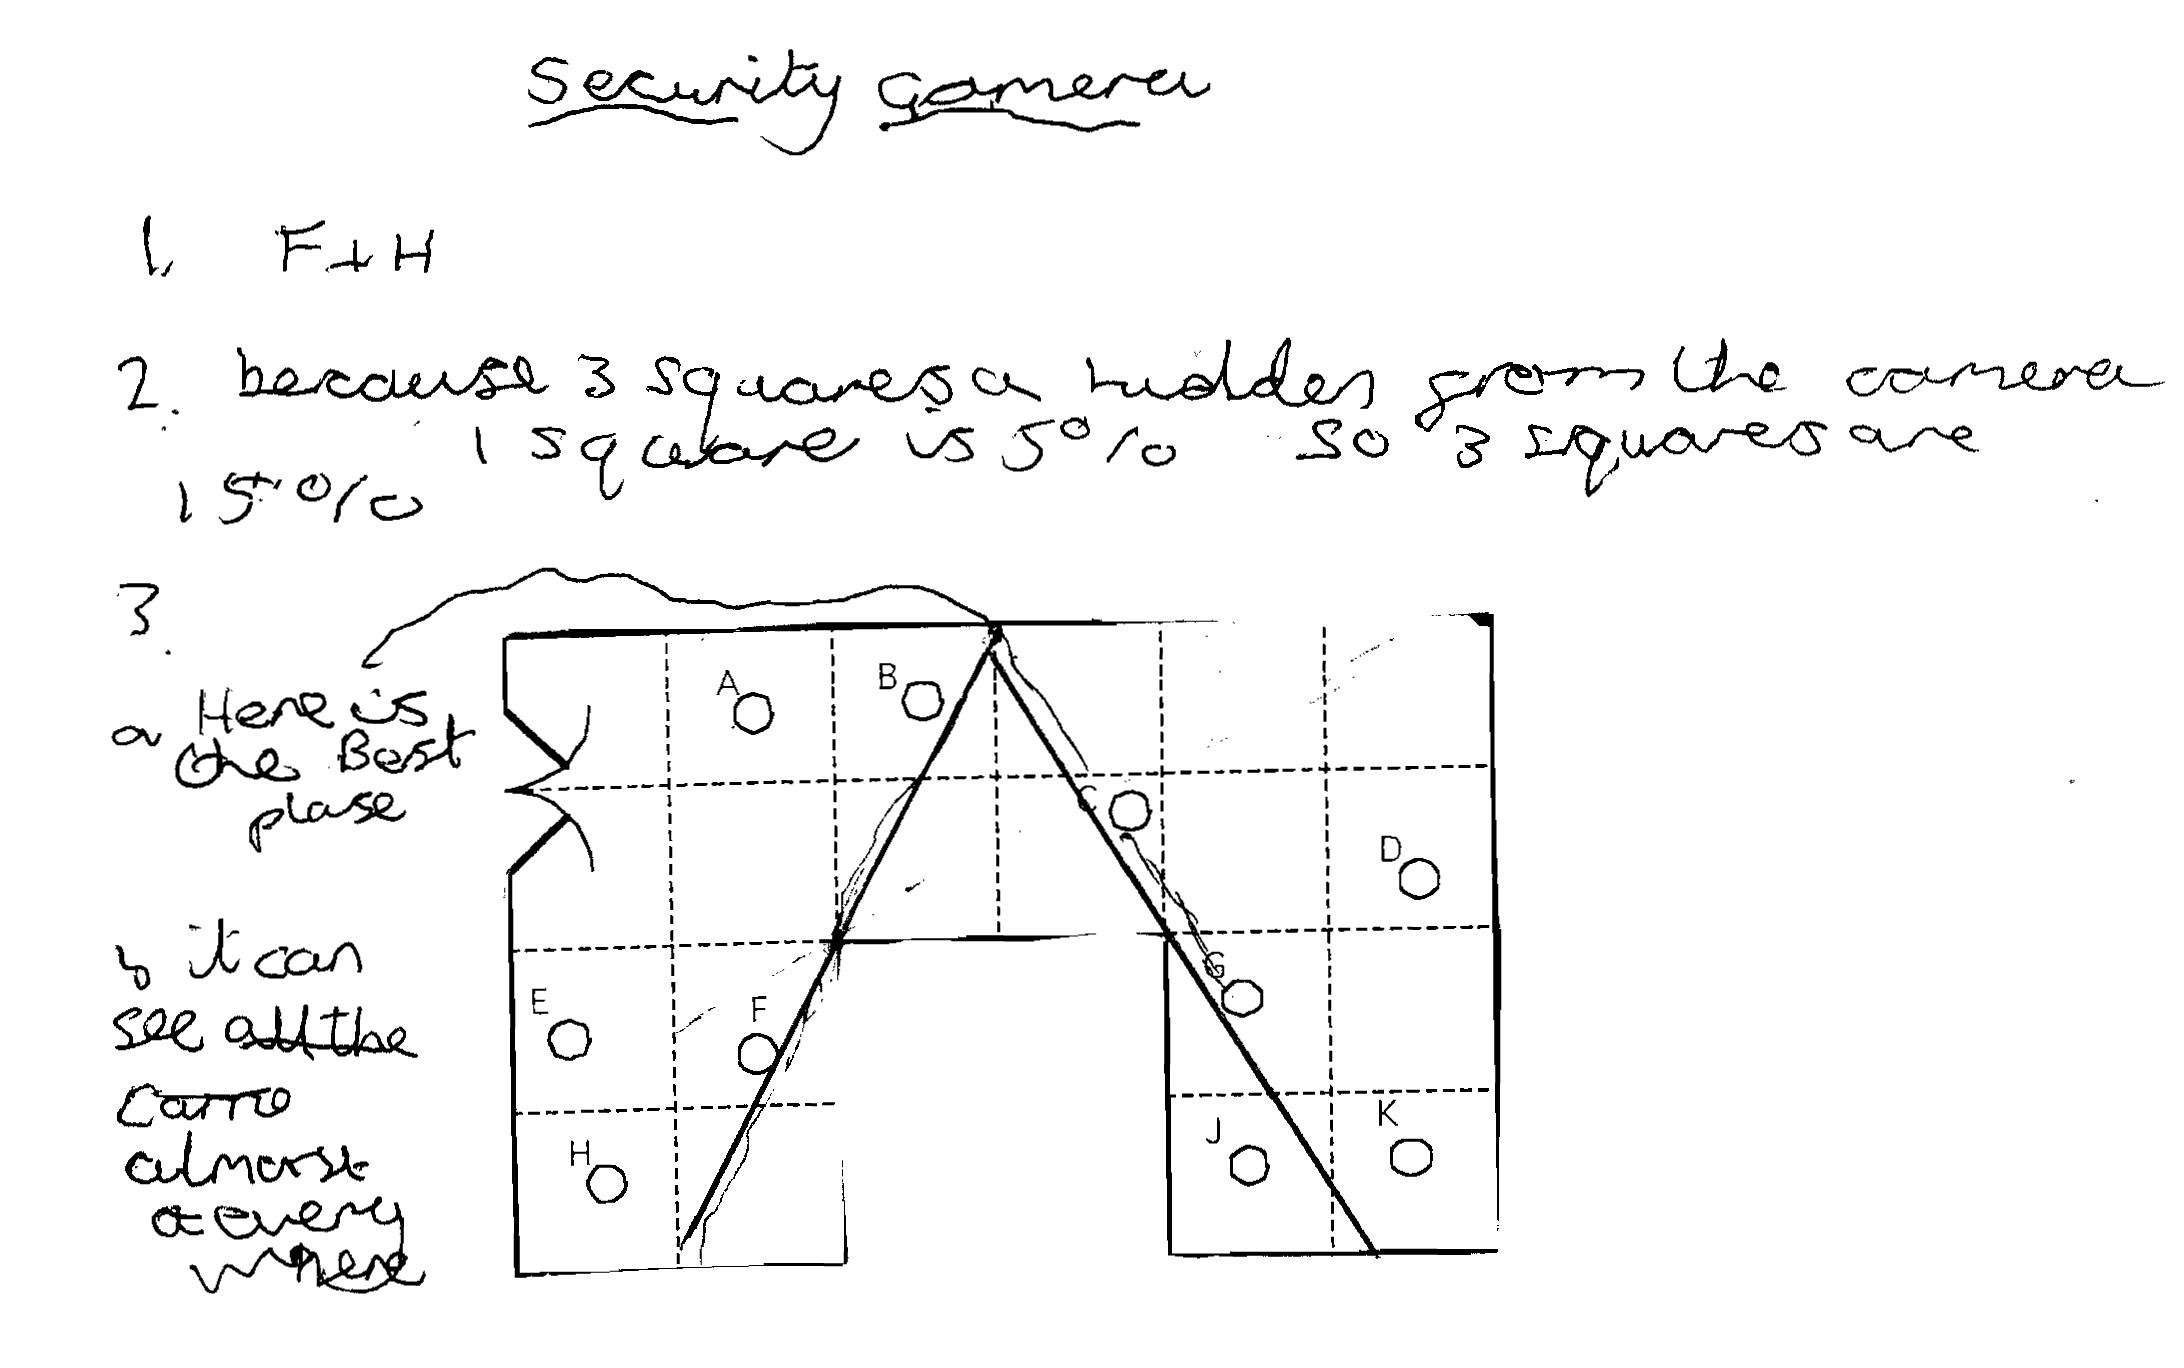 Security Camera
1. F + H
2. because 3 squares a hidden from the camera
1 square is 5% so 3 squares are
15%
3.
a Here is
the Best
plase
b it can
see all the
almorst
every
where
A
B
C
D
E
F
G
H
J
K